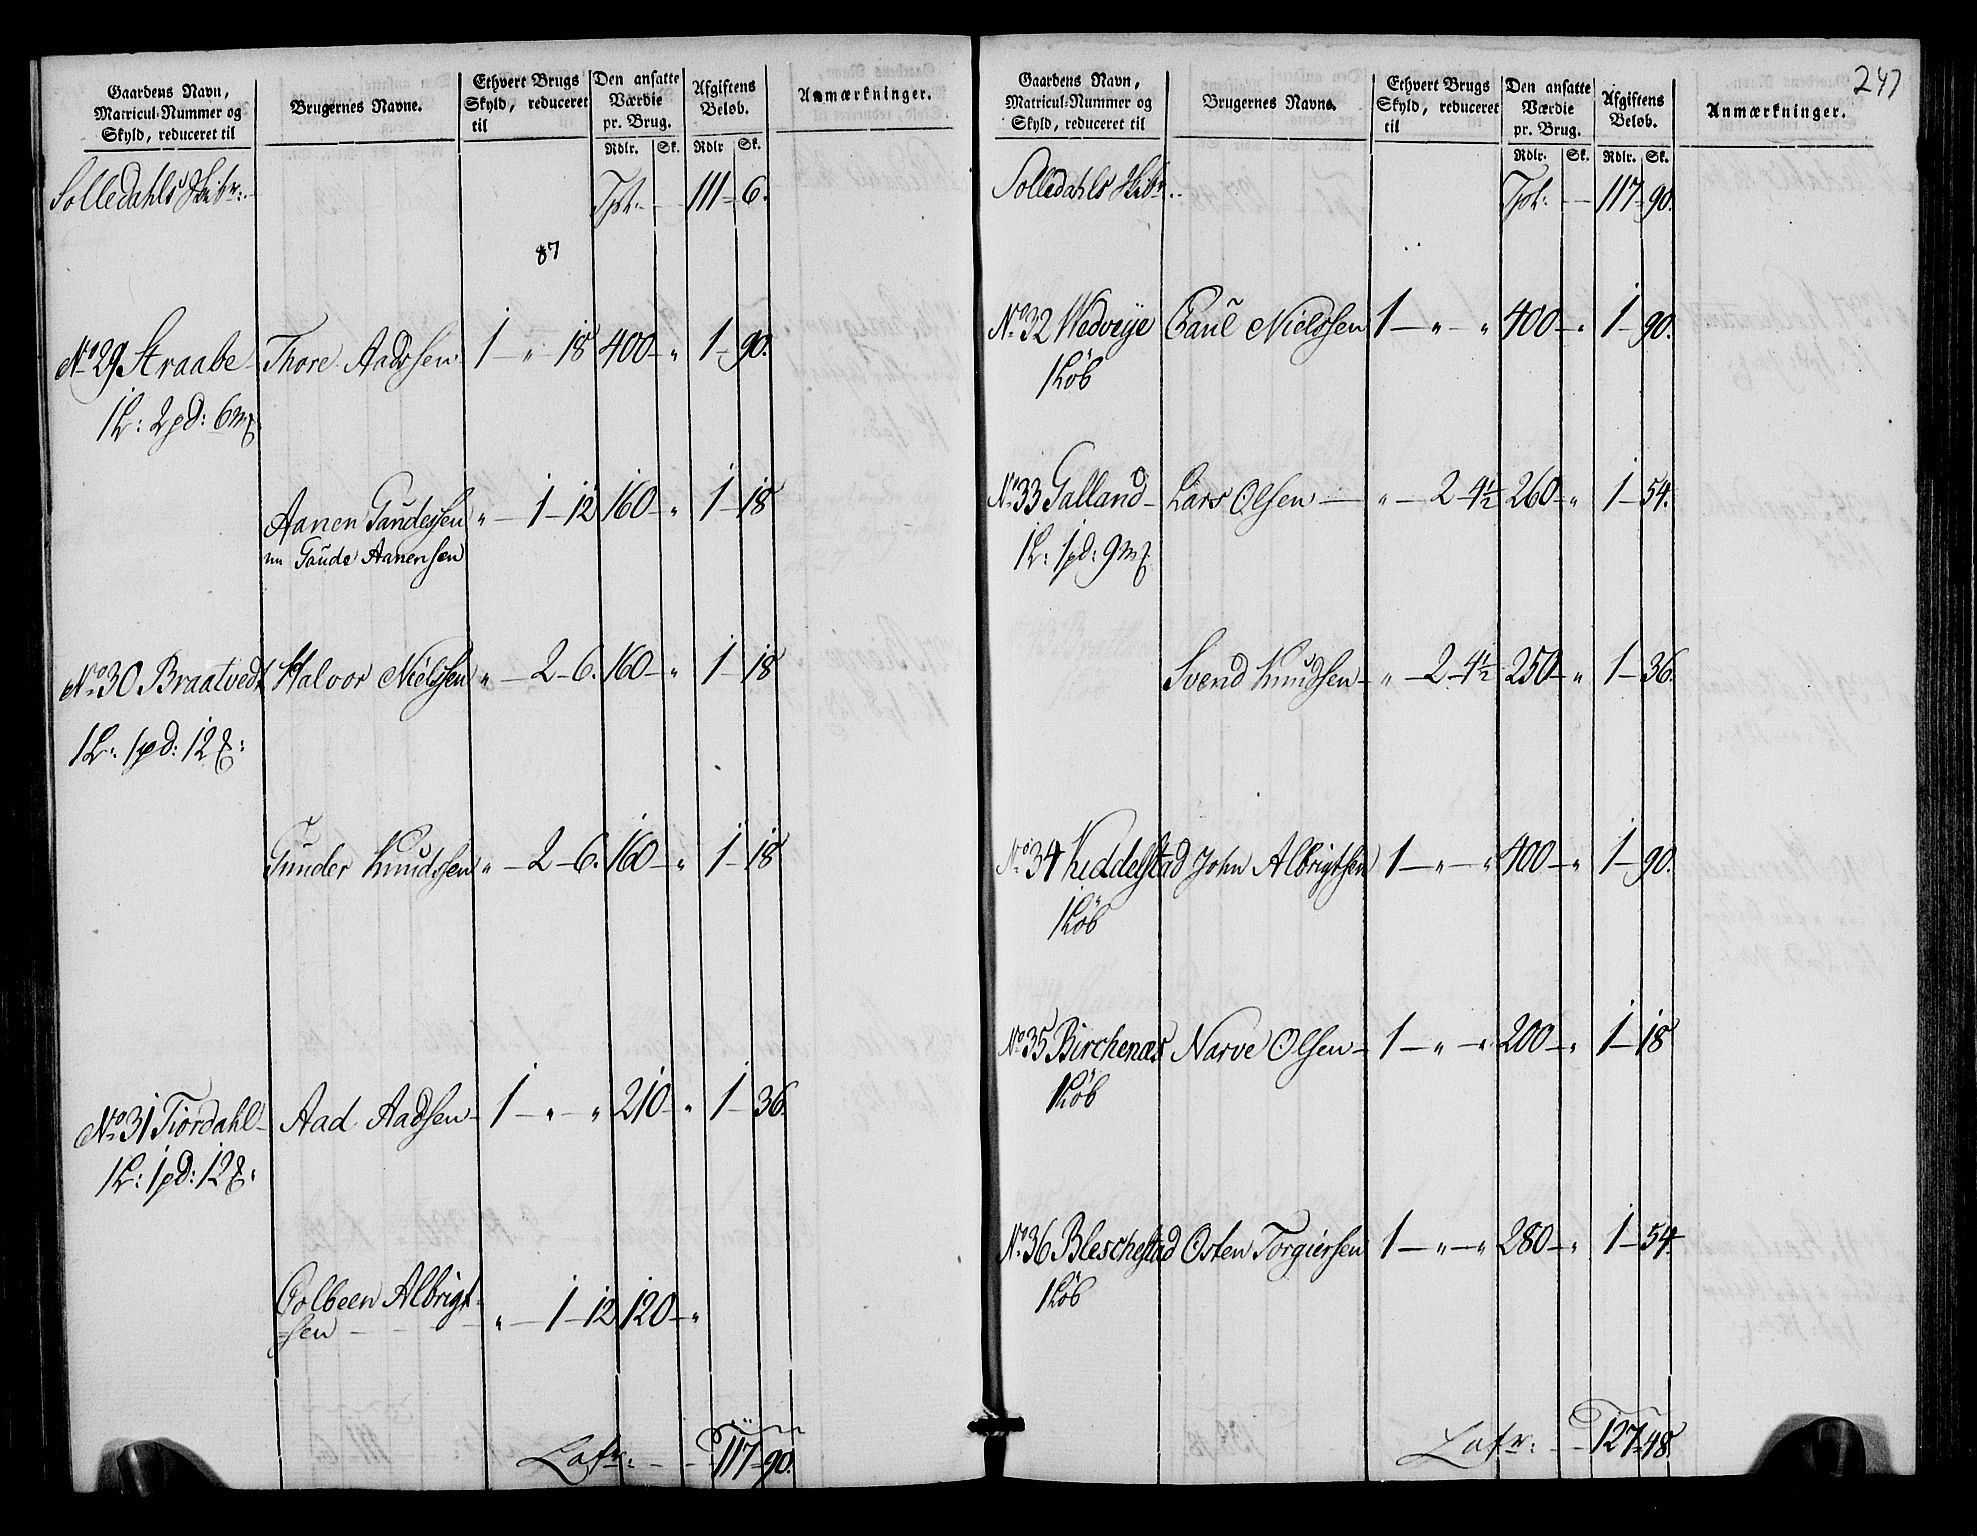 Gaardens Navn, Matricul-Nummer og Skyld, reduceret til
Brugernes Navne.
Ethvert Brugs Skyld, reduceret til
Den ansatte Værdie pr. Brug.
Afgiftens Beløb.
Anmærkninger.
Rdlr. Sk. Rdlr Sk.
Solledahls Skibr: Tpt. 111 - 6.
87
No 29 Straabe Thore Aadssen 1 - " - 18 400 - " 1 - 90.
1L: 2pd: 6mk
Aanen Gundersen " - 1 - 12 160 - " 1 - 18
nu Gaude Aanensen
No 30 Braatvedt Halvor Nielssen " - 2 - 6. 160 - " 1 - 18
1L: 1pd: 12
Gunder Knudssen " - 2 - 6. 160 - " 1 - 18
No 31 Fiordahl Aad Aadsen 1 - " - " 210 - " 1 - 36.
1L: 1pd: 12
Colbeen Albrigt-
sen " - 1 - 12 120 - "
Lafr: 117 - 90.
247
Gaardens Navn, Matricul-Nummer og Skyld, reduceret til
Brugernes Navne.
Ethvert Brugs Skyld, reduceret til
Den ansatte Værdie pr. Brug.
Afgiftens Beløb.
Anmærkninger.
Rdlr. Sk. Rdlr. Sk.
Solledahls Skibr. Tpt: 117 - 90.
No 32 Wedveye Paul Nielssen 1 - " - " 400 - " 1 - 90.
1 Løb
No 33 Galland Lars Olsen " - 2 - 4½ 260 - " 1 - 54.
1L: 1pd: 9mk
Svend Knudsen " - 2 - 4½ 250 - " 1 - 36.
No 34 Kiddelstad John Albrigtsen 1 - " - " 400 - " 1 - 90.
1 Løb
No 35 Birchenæs Narve Olsen 1 - " - " 200 - " 1 - 18
1 Løb
No 36 Bleschestad Osten Torgiersen 1 - " - " 280 - " 1 - 54.
1 Løb
Lafr: 127 - 48.